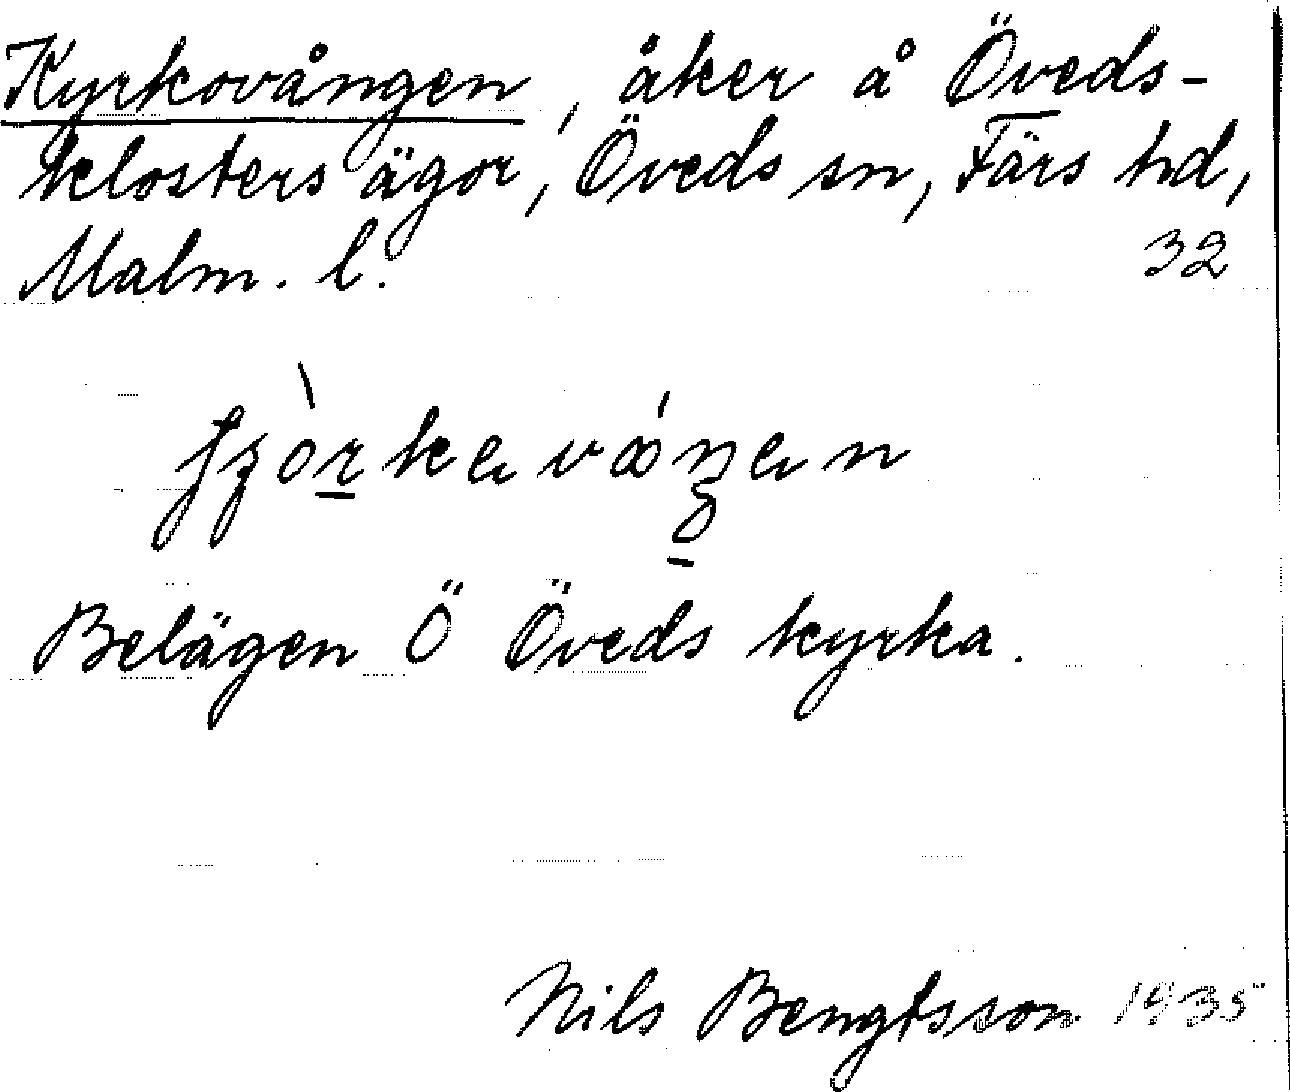 Kyrkovången, åker å Öveds-
klosters ägor, Öveds sn, Färs hd,
Malm. l. 32
Belägen Ö Öveds kyrka.
Nils Bengtsson 1935